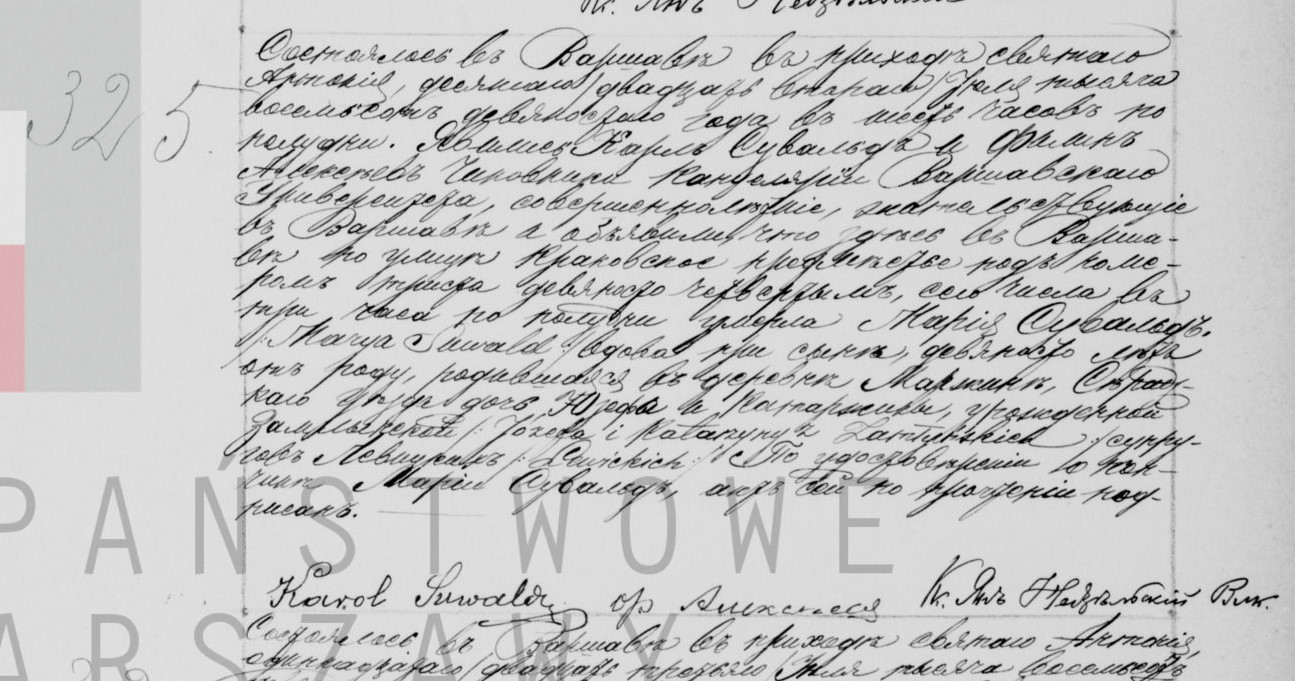 Кс. Янъ
325.
Состоялось въ Варшавѣ въ приходѣ святаго
Антонія, десятаго /двадцать втораго/ Іюля тысяча
восемьсотъ девяностаго года въ шесть часовъ по
полудни. Явились Карлъ Сувальдъ и
Алексѣевъ Чиновники Канцеляріи Варшавскаго
Университета, совершеннолѣтніе, жительствующіе
въ Варшавѣ и объявили, что здѣсь въ Варша-
вѣ по улицѣ Краковское предмѣстье подъ номе-
ромъ триста девяносто четвертымъ, сего числа въ
три часа по полудни умерла Марія Сувальдъ
/: Marya Suwald :/ вдова при сынѣ, девяносто лѣтъ
отъ роду, родившаяся въ деревнѣ
каго уѣзда дочь Юзефа и Катаржины, урожденной
/: Józefa i Katarzyny z :/ супру-
говъ Левицкихъ /: :/ По удостовѣреніи о кон-
чинѣ Маріи Сувальдъ, актъ сей по прочтеніи под-
писанъ.
Karol Suwald Алексѣевъ Кс. Янъ Вик.
Состоялось въ Варшавѣ въ приходѣ святаго Антонія,
одиннадцатаго /двадцать третьяго/ Іюля тысяча восемьсотъ
PAŃSTWOWE
ARSZAWY